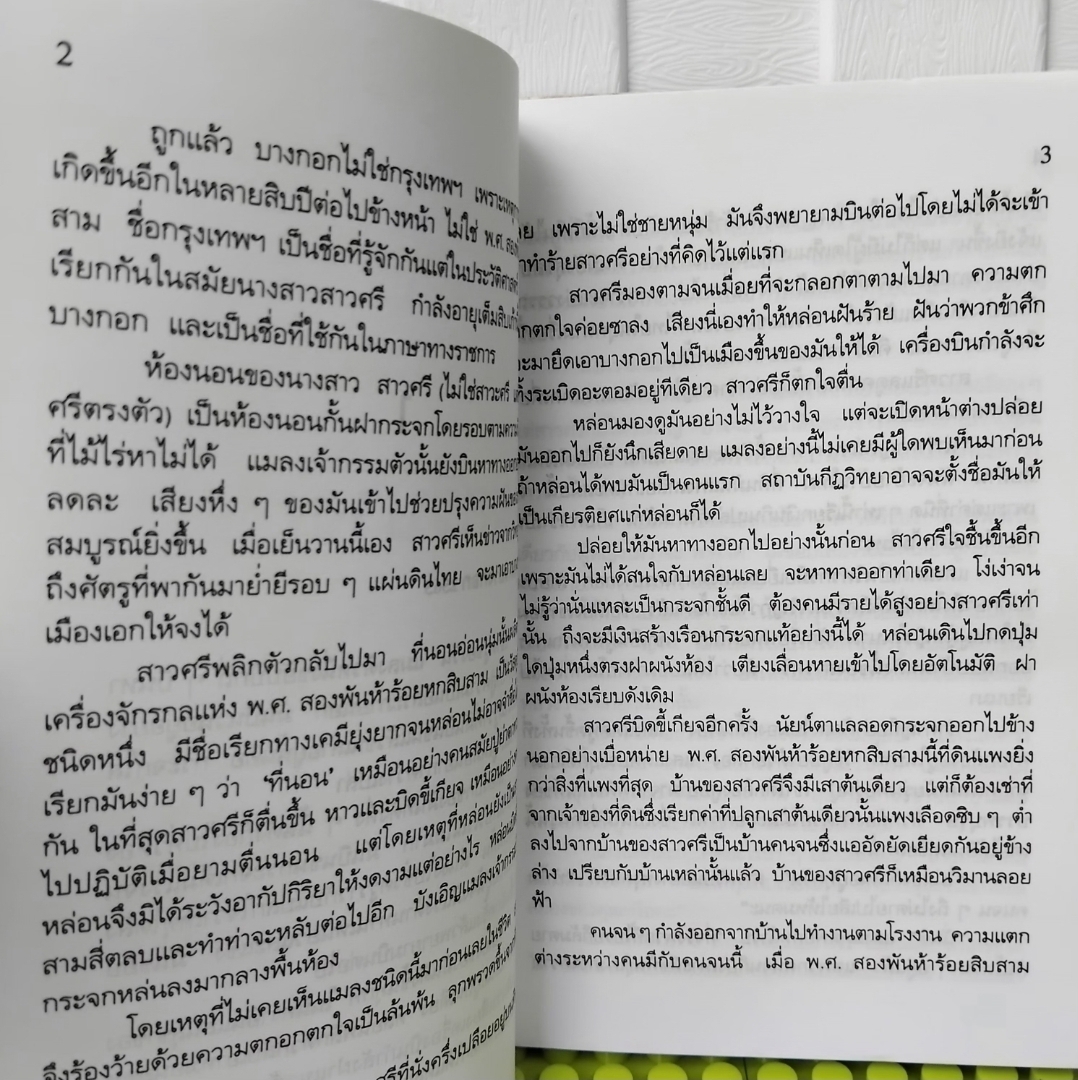 2
ถูกแล้ว บางกอกไม่ใช่กรุงเทพฯ
เกิดขึ้นอีกในหลายสิบปีต่อไปข้างหน้า ไม่ใช่ พ.ศ.
สาม ชื่อกรุงเทพฯ เป็นชื่อที่รู้จักกันแต่ในประวัติศาสตร์
เรียกกันในสมัยนางสาวสาวศรี กำลังอายุเต็มสิบ
บางกอก และเป็นชื่อที่ใช้กันในภาษาทางราชการ
ห้องนอนของนางสาว สาวศรี (ไม่ใช่สาวะศรี
ศรีตรงตัว) เป็นห้องนอนกั้นฝากระจกโดยรอบตาม
ที่ไม้ไร่หาไม่ได้ แมลงเจ้ากรรมตัวนั้นยังบินหาทางออก
ลดละ เสียงหึ่ง ๆ ของมันเข้าไปช่วยปรุงความฝัน
สมบูรณ์ยิ่งขึ้น เมื่อเย็นวานนี้เอง สาวศรีเห็นข่าวจาก
ถึงศัตรูที่พากันมาย่ำยีรอบ ๆ แผ่นดินไทย จะมาเอา
เมืองเอกให้จงได้
สาวศรีพลิกตัวกลับไปมา ที่นอนอ่อนนุ่มนั้น
เครื่องจักรกลแห่ง พ.ศ. สองพันห้าร้อยหกสิบสาม เป็น
ชนิดหนึ่ง มีชื่อเรียกทางเคมียุ่งยากจนหล่อนไม่อาจจำ
เรียกมันง่าย ๆ ว่า ‘ที่นอน’ เหมือนอย่างคนสมัยปู่ย่าตา
กัน ในที่สุดสาวศรีก็ตื่นขึ้น หาวและบิดขี้เกียจ เหมือนอย่าง
ไปปฏิบัติเมื่อยามตื่นนอน แต่โดยเหตุที่หล่อนยังเป็น
หล่อนจึงมิได้ระวังอากัปกิริยาให้งดงามแต่อย่างไร หล่อน
สามสี่ตลบและทำท่าจะหลับต่อไปอีก บังเอิญแมลงเจ้ากรรม
กระจกหล่นลงมากลางพื้นห้อง
โดยเหตุที่ไม่เคยเห็นแมลงชนิดนี้มาก่อนเลยในชีวิต
จึงร้องว้ายด้วยความตกอกตกใจเป็นล้นพ้น ลุกพรวดขึ้นจาก
ศรีที่นั่งครึ่งเปลือยอยู่บน
3
เพราะไม่ใช่ชายหนุ่ม มันจึงพยายามบินต่อไปโดยไม่ได้จะเข้า
ทำร้ายสาวศรีอย่างที่คิดไว้แต่แรก
สาวศรีมองตามจนเมื่อยที่จะกลอกตาตามไปมา ความตก
อกตกใจค่อยซาลง เสียงนี่เองทำให้หล่อนฝันร้าย ฝันว่าพวกข้าศึก
จะมายึดเอาบางกอกไปเป็นเมืองขึ้นของมันให้ได้ เครื่องบินกำลังจะ
ทิ้งระเบิดอะตอมอยู่ทีเดียว สาวศรีก็ตกใจตื่น
หล่อนมองดูมันอย่างไม่ไว้วางใจ แต่จะเปิดหน้าต่างปล่อย
มันออกไปก็ยังนึกเสียดาย แมลงอย่างนี้ไม่เคยมีผู้ใดพบเห็นมาก่อน
ถ้าหล่อนได้พบมันเป็นคนแรก สถาบันกีฏวิทยาอาจจะตั้งชื่อมันให้
เป็นเกียรติยศแก่หล่อนก็ได้
ปล่อยให้มันหาทางออกไปอย่างนั้นก่อน สาวศรีใจชื้นขึ้นอีก
เพราะมันไม่ได้สนใจกับหล่อนเลย จะหาทางออกท่าเดียว โง่เง่าจน
ไม่รู้ว่านั่นแหละเป็นกระจกชั้นดี ต้องคนมีรายได้สูงอย่างสาวศรีเท่า
นั้น ถึงจะมีเงินสร้างเรือนกระจกแท้อย่างนี้ได้ หล่อนเดินไปกดปุ่ม
ใดปุ่มหนึ่งตรงฝาผนังห้อง เตียงเลื่อนหายเข้าไปโดยอัตโนมัติ ฝา
ผนังห้องเรียบดังเดิม
สาวศรีบิดขี้เกียจอีกครั้ง นัยน์ตาแลลอดกระจกออกไปข้าง
นอกอย่างเบื่อหน่าย พ.ศ. สองพันห้าร้อยหกสิบสามนี้ที่ดินแพงยิ่ง
กว่าสิ่งที่แพงที่สุด บ้านของสาวศรีจึงมีเสาต้นเดียว แต่ก็ต้องเช่าที่
จากเจ้าของที่ดินซึ่งเรียกค่าที่ปลูกเสาต้นเดียวนั้นแพงเลือดซิบ ๆ ต่ำ
ลงไปจากบ้านของสาวศรีเป็นบ้านคนจนซึ่งแออัดยัดเยียดกันอยู่ข้าง
ล่าง เปรียบกับบ้านเหล่านั้นแล้ว บ้านของสาวศรีก็เหมือนวิมานลอย
ฟ้า
คนจน ๆ กำลังออกจากบ้านไปทำงานตามโรงงาน ความแตก
ต่างระหว่างคนมีกับคนจนนี้ เมื่อ พ.ศ. สองพันห้าร้อยสิบสาม